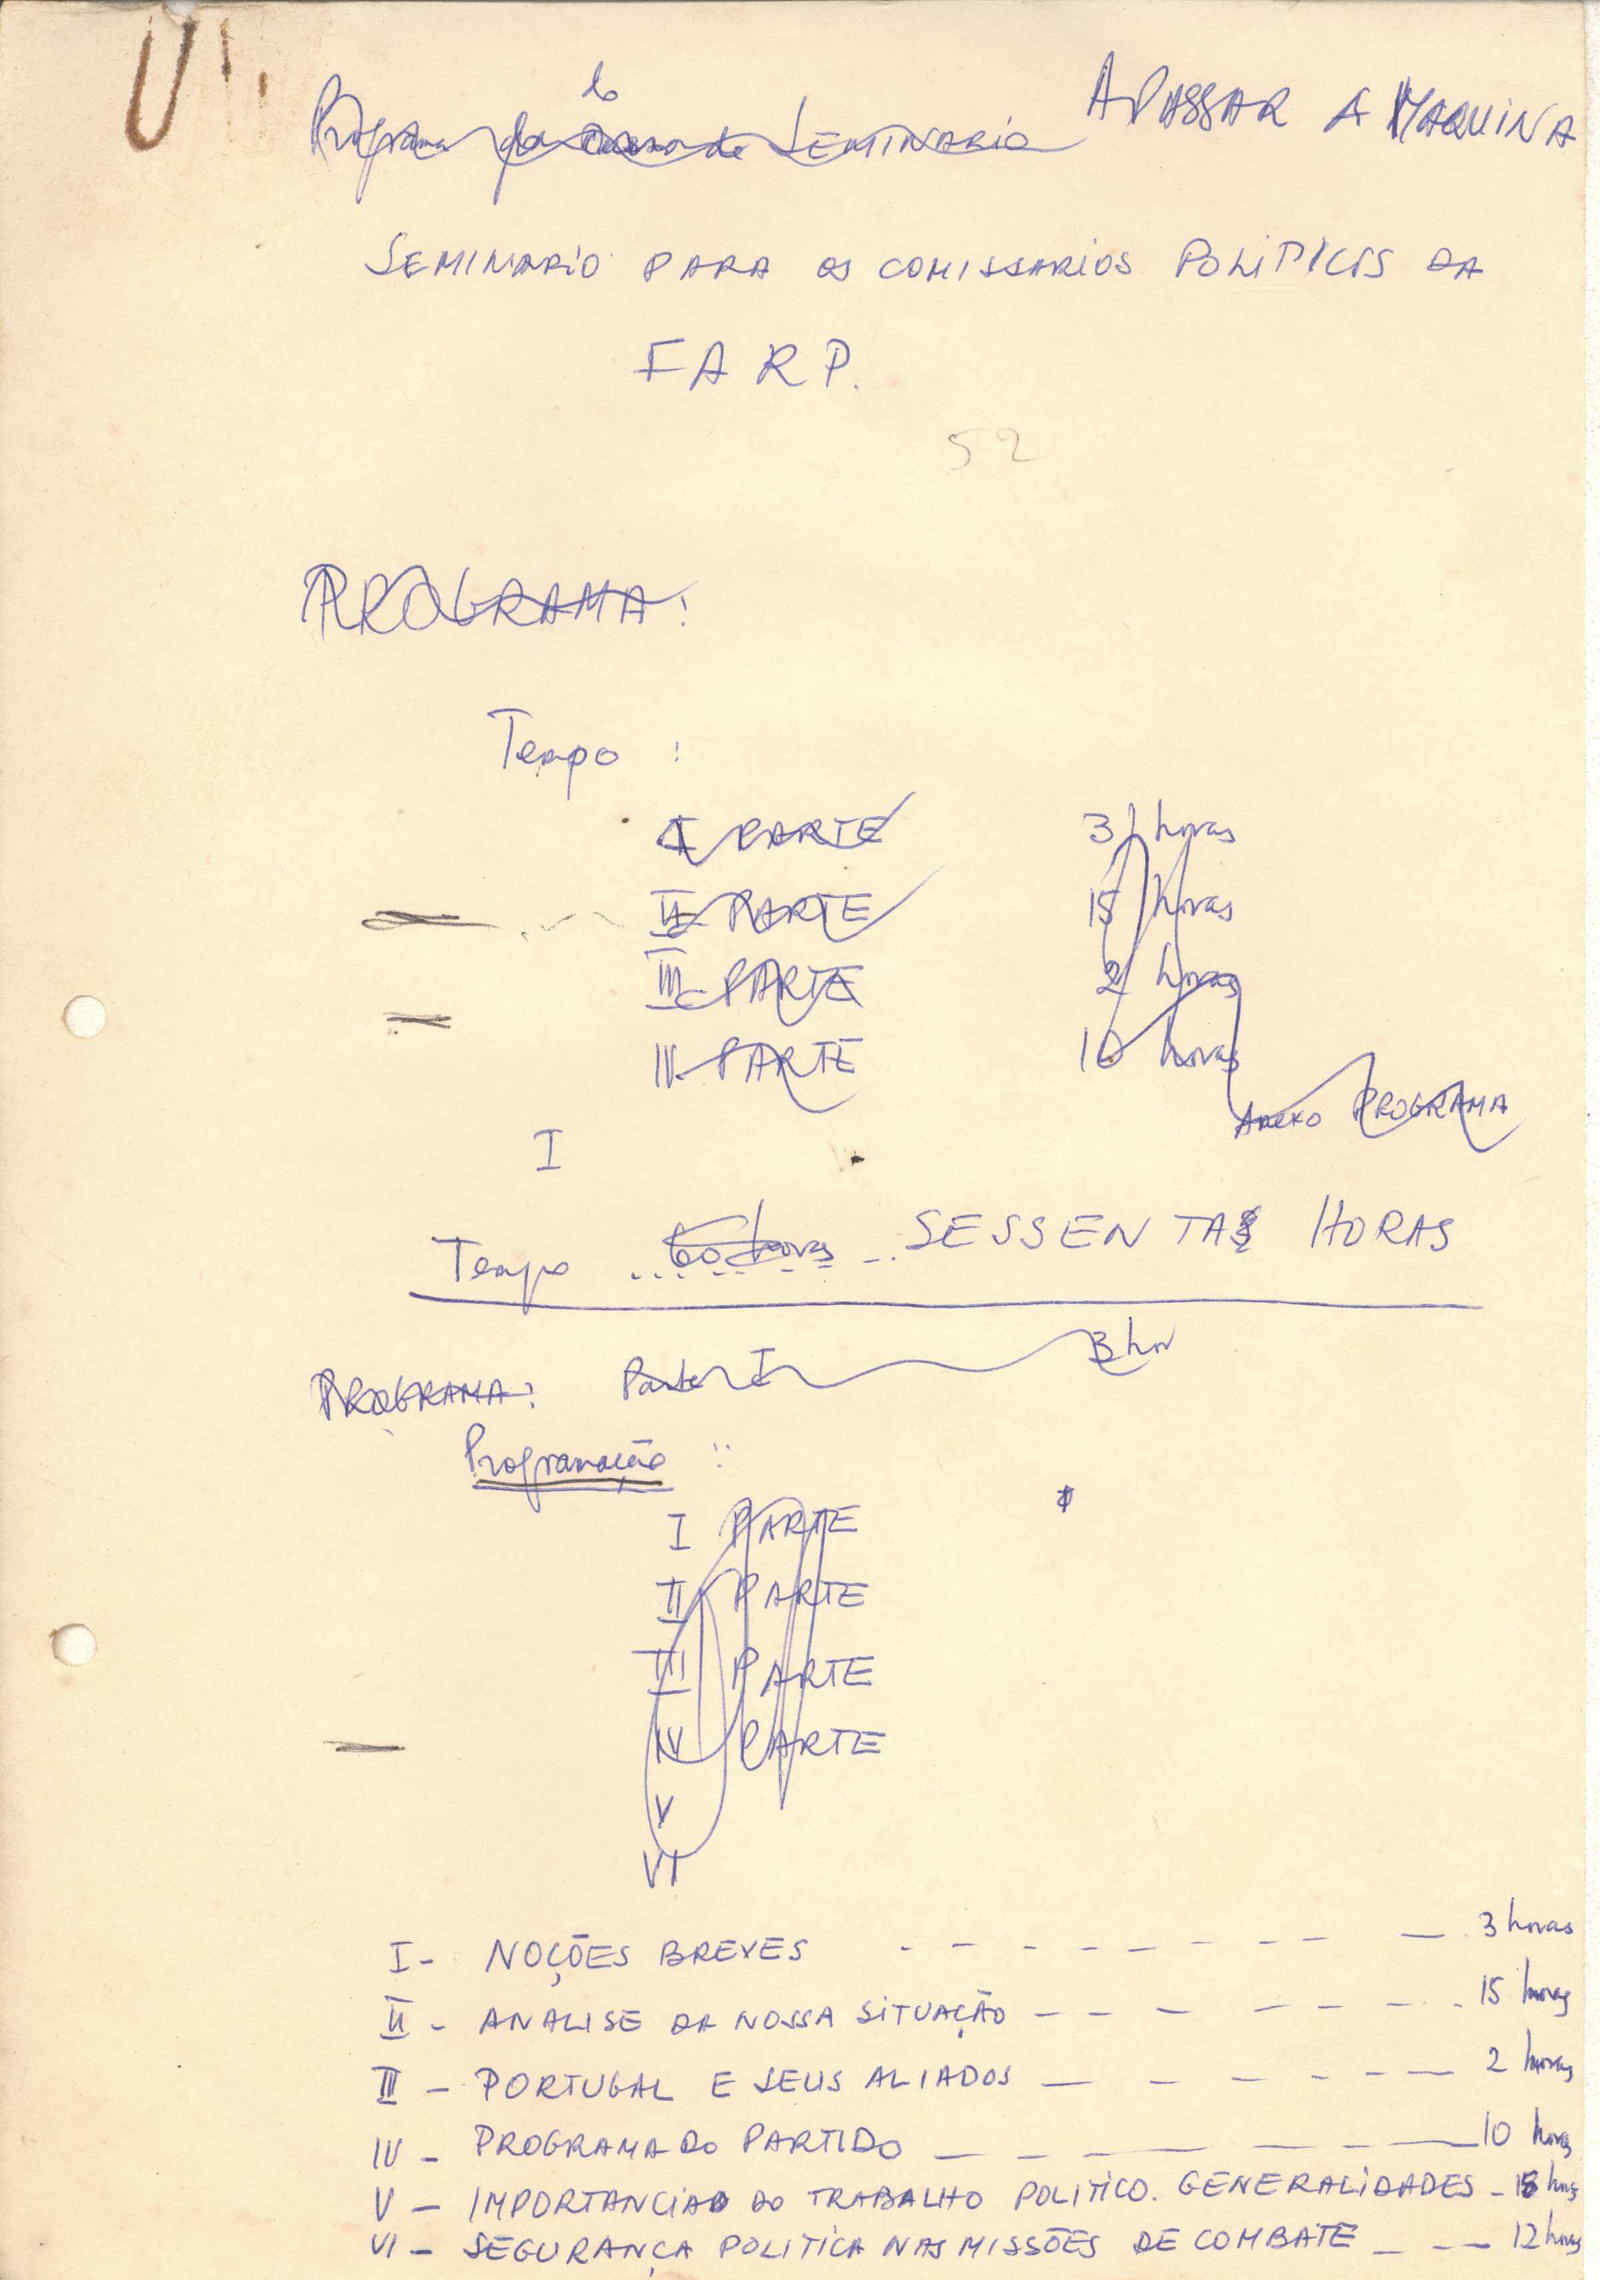 do
Programa do Seminario A PASSAR A MAQUINA
SEMINARIO PARA OS COMISSARIOS POLITICOS DA
FARP.
52
PROGRAMA:
Tempo :
I PARTE 3 horas
II PARTE 15 horas
III PARTE 2 horas
IV PARTE 10 horas
Anexo PROGRAMA
I
Tempo ... 60 horas - .. SESSENTA HORAS
PROGRAMA: Parte I 3 hor
Programação :
I PARTE
II PARTE
III PARTE
IV PARTE
V
VI
I - NOÇÕES BREVES - - - - - - - - - 3 horas
II - ANALISE DA NOSSA SITUAÇÃO - - - - - - - - 15 horas
III - PORTUGAL E SEUS ALIADOS - - - - - - - 2 horas
IV - PROGRAMA DO PARTIDO - - - - - - 10 horas
V - IMPORTANCIA DO TRABALHO POLITICO. GENERALIDADES - 18 horas
VI - SEGURANÇA POLITICA NAS MISSÕES DE COMBATE - - - 12 horas